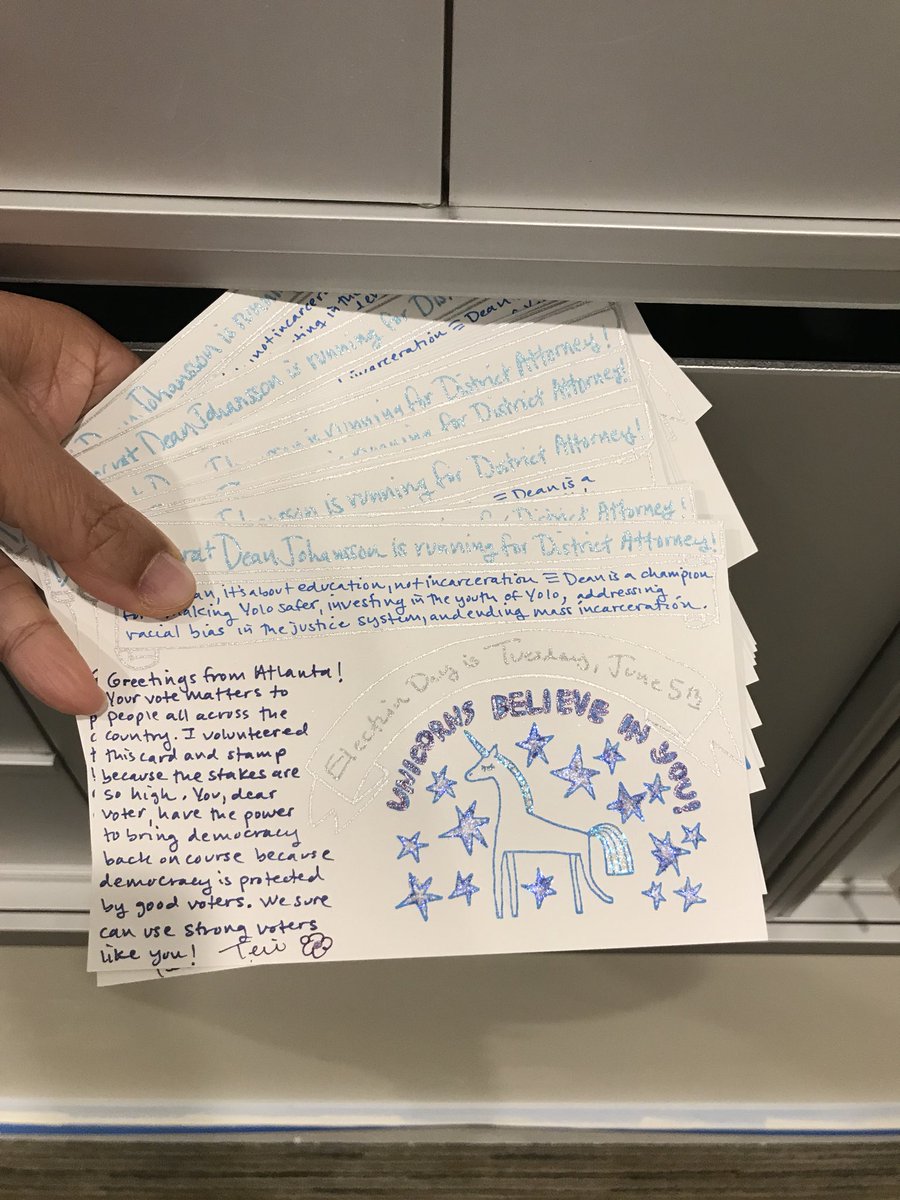 Johansson is
not incarcer
ting in th
incarceration ≡ Dean
Dean Johansson is running for Dis
is running for District Attorney!
running for District Attorney!
is running for District Attorney!
≡ Dean is a
District Attorney!
Dean Johansson is running for District Attorney!
it's about education, not incarceration ≡ Dean is a champion
making Yolo safer, investing in the youth of Yolo, addressing
racial bias in the justice system, and ending mass incarceration.
Election Day is Tuesday, June 5th
UNICORNS BELIEVE IN YOU!
Greetings from Atlanta!
Your vote matters to
people all across the
country. I volunteered
this card and stamp
because the stakes are
so high. You, dear
voter, have the power
to bring democracy
back on course because
democracy is protected
by good voters. We sure
can use strong voters
like you! Teri